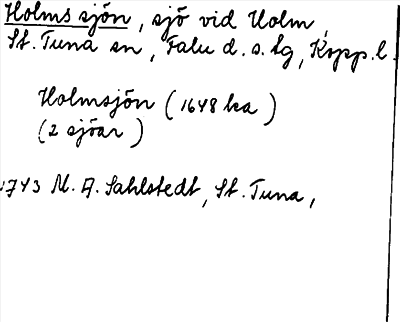 Holms sjön, sjö vid Holm,
St. Tuna sn, Falu d. s. lg, Kopp. l.
Holmsjön (1648 ka)
(2 sjöar)
1743 M. A. Sahlstedt, St. Tuna,